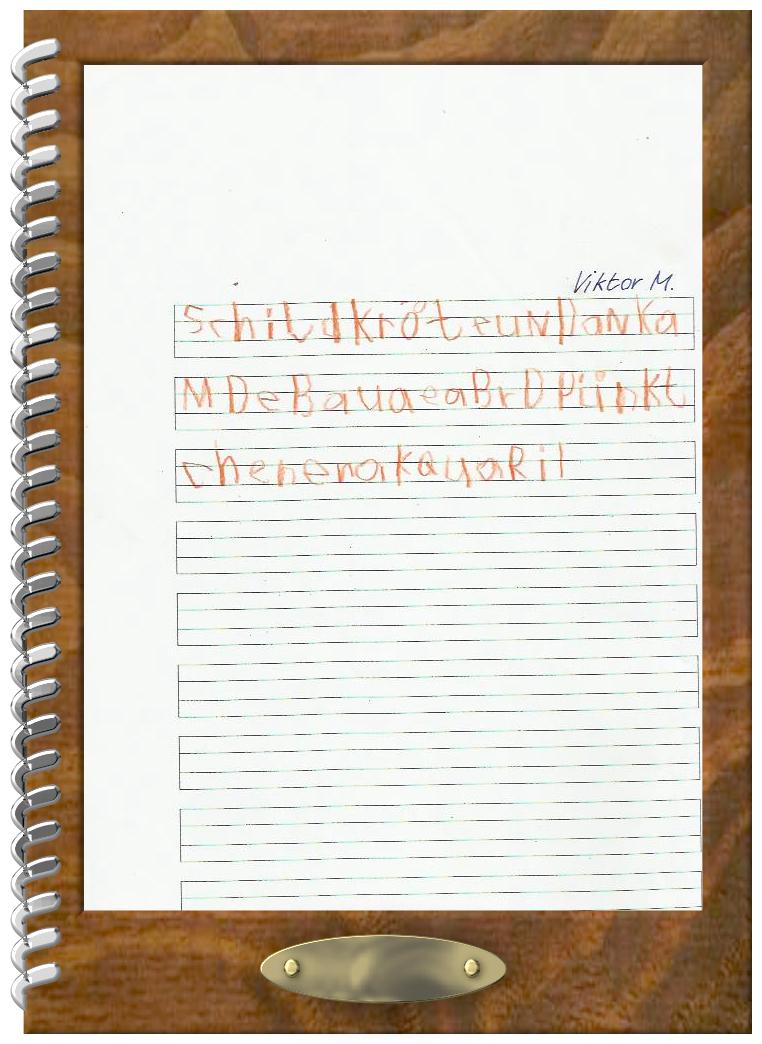 Viktor M.
SchildkröteunDanKa
MDeBauaeaBrDPünkt
chenenakauaRil